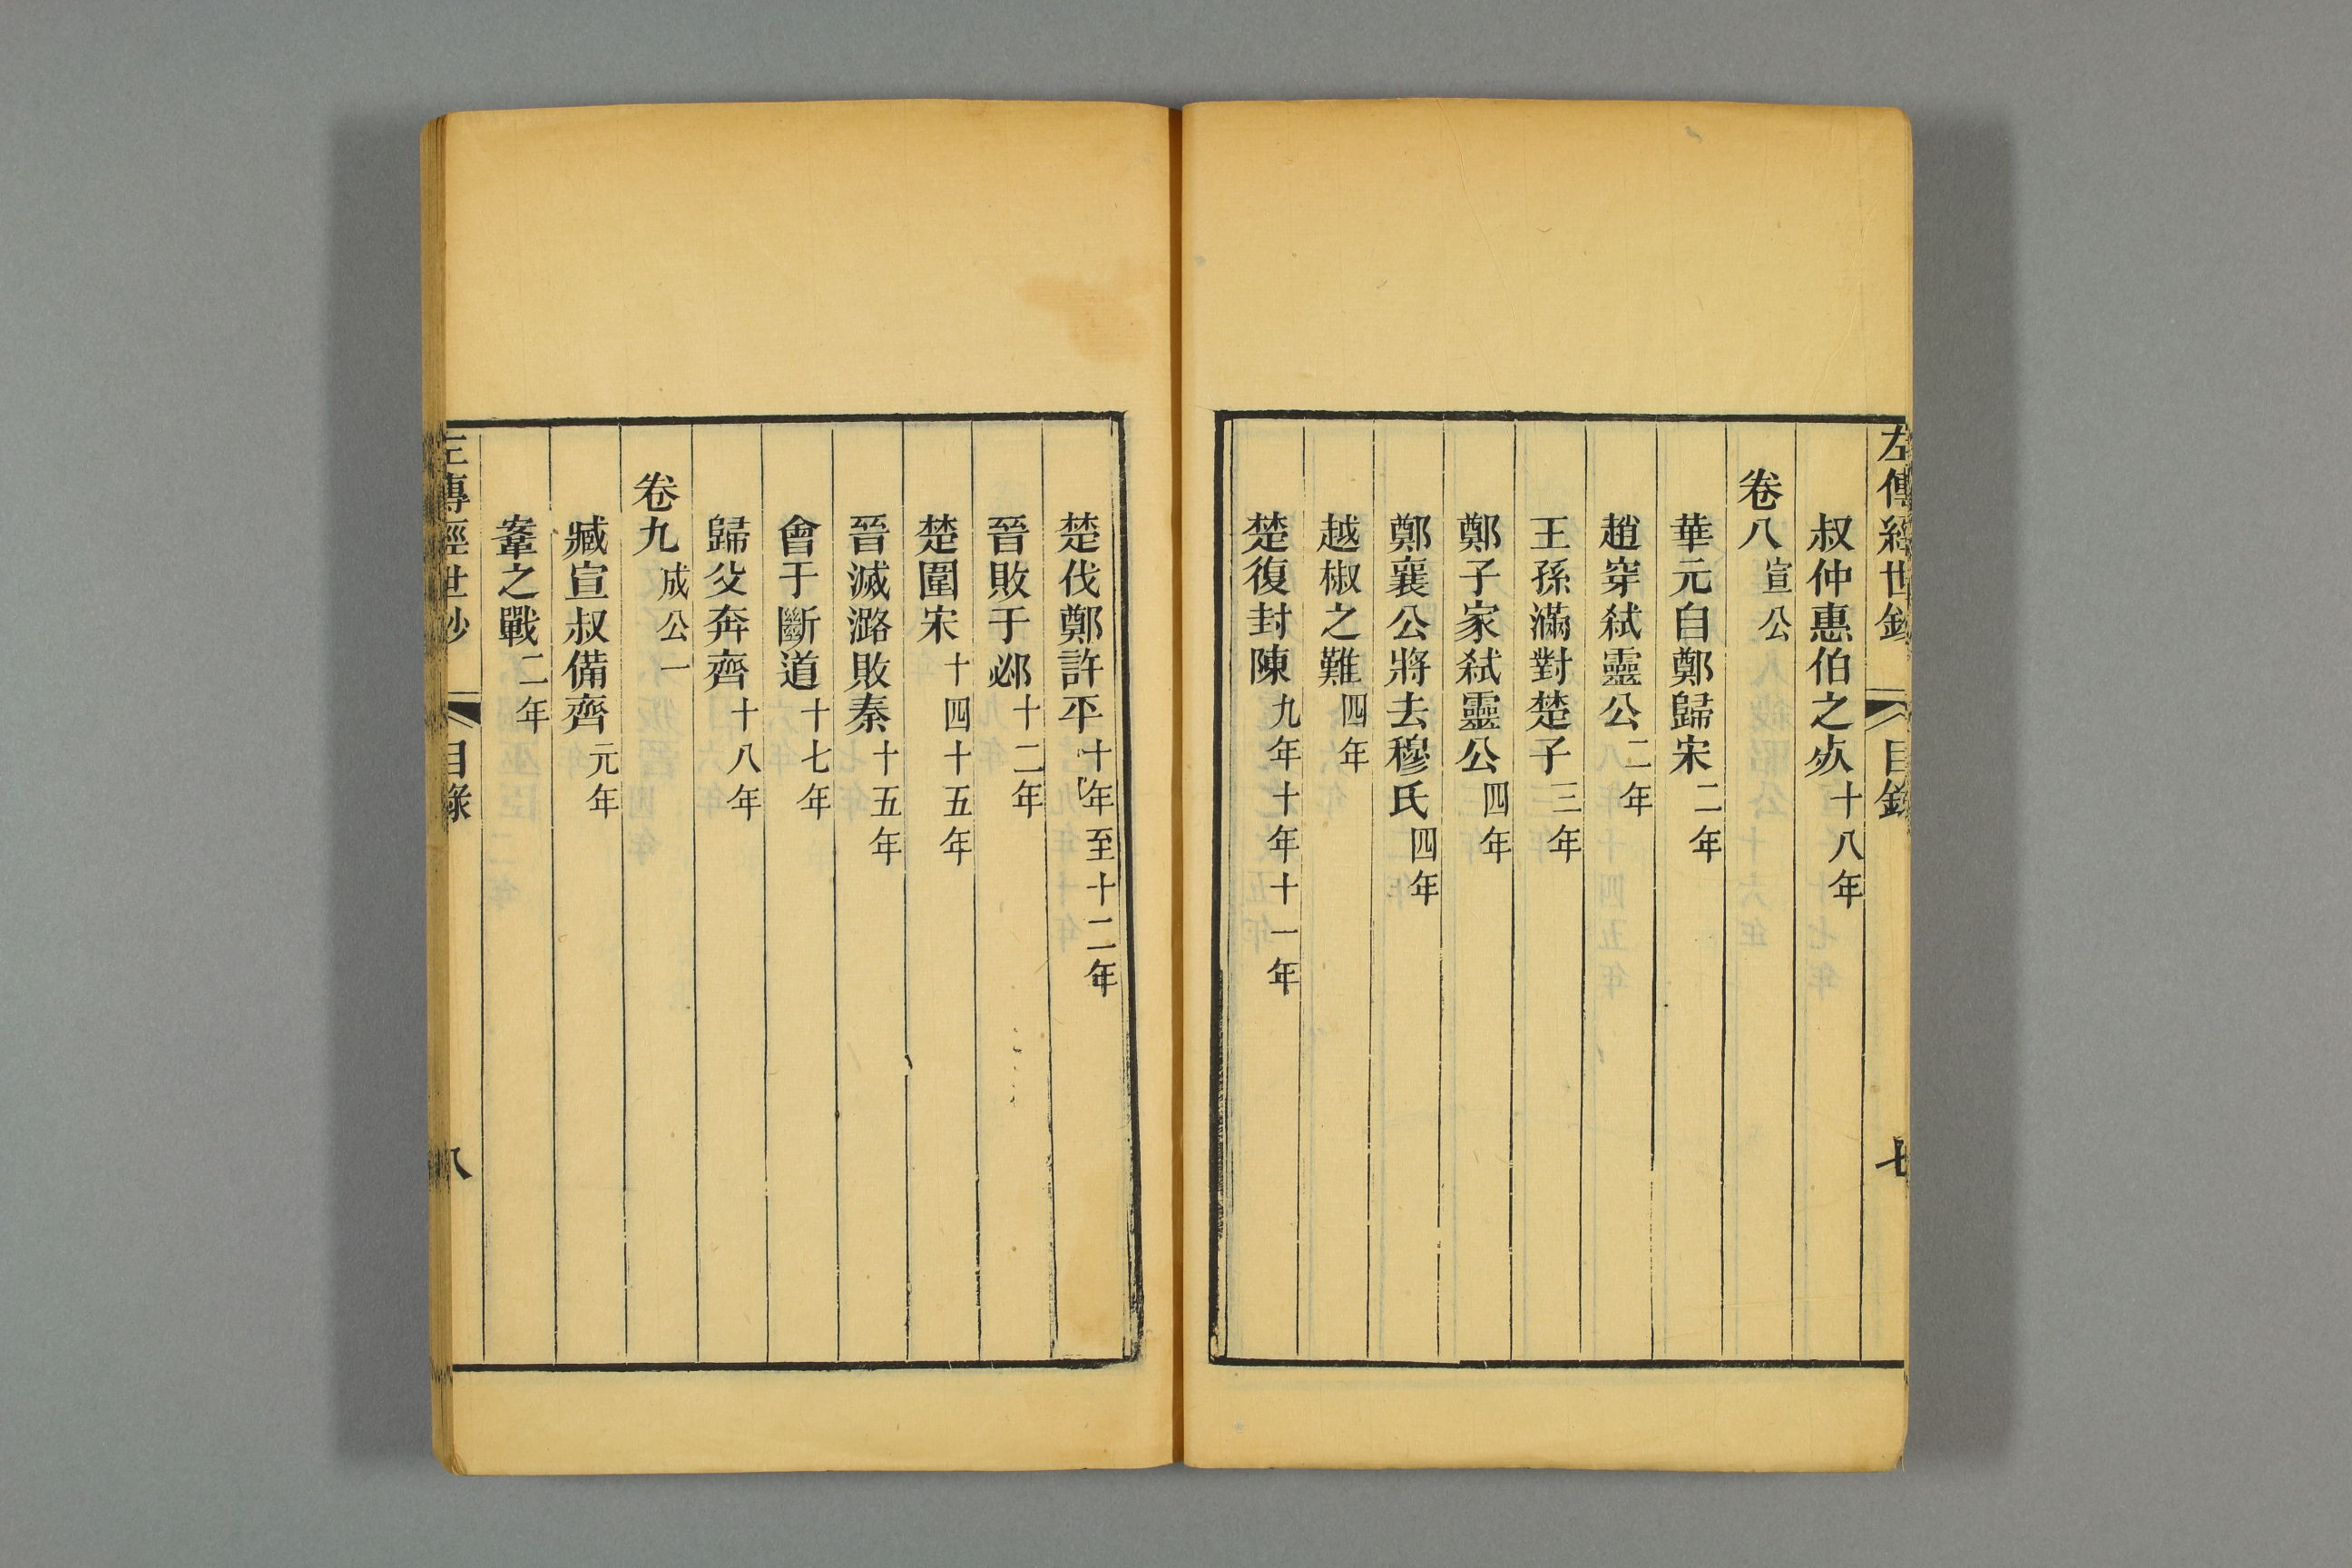 左傳經世鈔 目錄 七
叔仲惠伯之死十八年
卷八宣公
華元自鄭歸宋二年
趙穿弑靈公二年
王孫滿對楚子三年
鄭子家弑靈公四年
鄭襄公將去穆氏四年
越椒之難四年
楚復封陳九年十年十一年
楚伐鄭許平十年至十二年
晉敗于邲十二年
楚圍宋十四十五年
晉滅潞敗秦十五年
會于斷道十七年
歸父奔齊十八年
卷九成公一
臧宣叔備齊元年
鞌之戰二年
左傳經世鈔 目錄 八